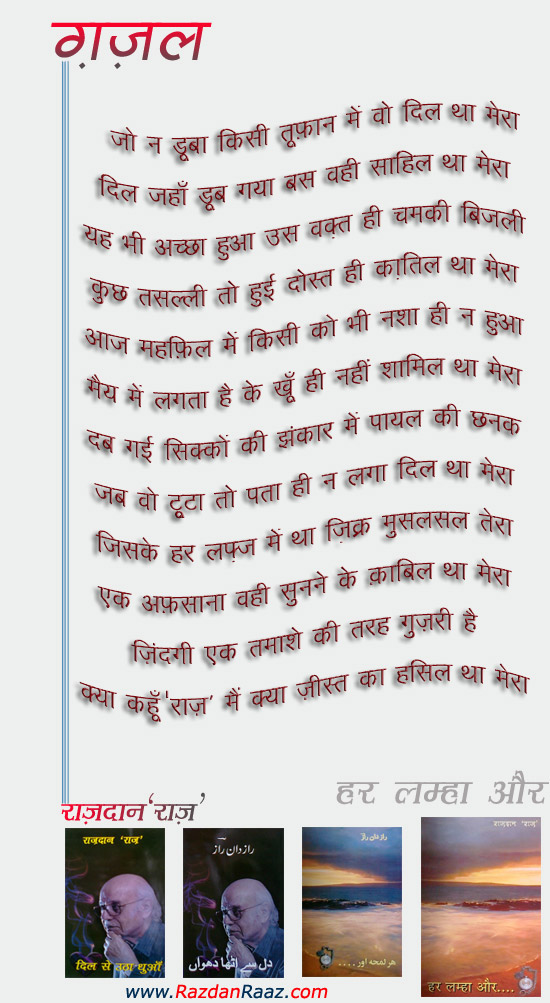 ग़ज़ल
जो न डूबा किसी तूफ़ान में वो दिल था मेरा
दिल जहाँ डूब गया बस वही साहिल था मेरा
यह भी अच्छा हुआ उस वक़्त ही चमकी बिजली
कुछ तसल्ली तो हुई दोस्त ही क़ातिल था मेरा
आज महफ़िल में किसी को भी नशा ही न हुआ
मैय में लगता है के खूँ ही नहीं शामिल था मेरा
दब गई सिक्कों की झंकार में पायल की छनक
जब वो टूटा तो पता ही न लगा दिल था मेरा
जिसके हर लफ़्ज में था ज़िक्र मुसलसल तेरा
एक अफ़साना वही सुनने के क़ाबिल था मेरा
ज़िंदगी एक तमाशे की तरह गुज़री है
क्या कहूँ 'राज़' मैं क्या ज़ीस्त का हसिल था मेरा
हर लम्हा और
राज़दान 'राज़'
राज़दान 'राज़'
دل سے اٹھا دھواں
رازدان راز
दिल से उठा धुआँ
رازدان راز
ھر لمحہ اور....
राज़दान 'राज़'
हर लम्हा और....
www.RazdanRaaz.com